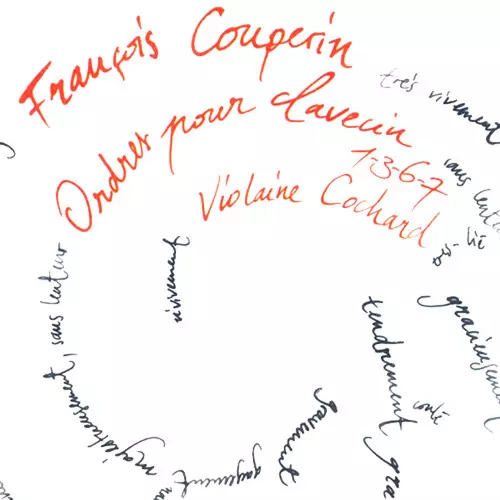 François Couperin
Ordres pour clavecin
1-3-6-7
Violaine Cochard
très vivement
sans lenteur
lié
gracieusement
tendrement
gra
gravement
gayement
majestueusement,
sans lenteur
vivement